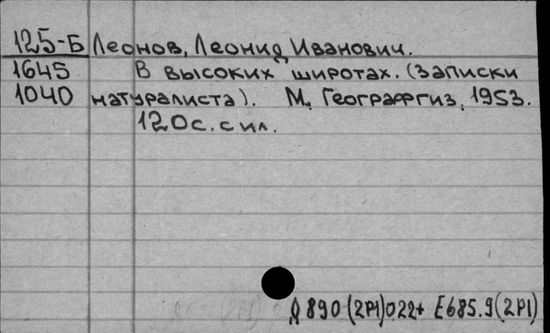 125-Б Леонов, Леонид Иванович.
1645 В высоких широтах. (Записки
1040 натуралиста). М, Географгиз, 1953.
120с. с ил.
Д 890 (2Р1)022+ Е685.9(2Р1)